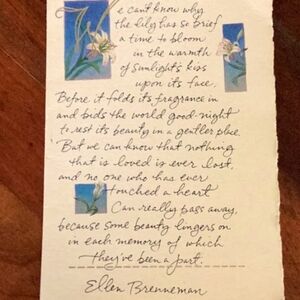 We can't know why
the lily has so brief
a time to bloom
in the warmth
of sunlight's kiss
upon its face,
Before it folds its fragrance in
and bids the world good-night
to rest its beauty in a gentler place.
But we can know that nothing
that is loved is ever lost,
and no one who has ever
touched a heart
Can really pass away,
because some beauty lingers on
in each memory of which
they've been a part.
Ellen Brenneman